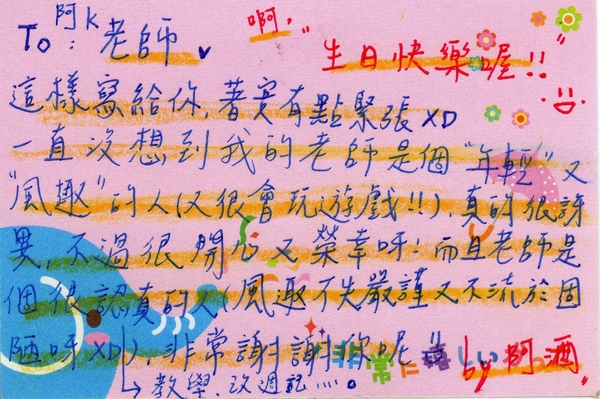 To：阿k老師
啊，
"生日快樂喔!!"
這樣寫給你，著實有點緊張XD
一直沒想到我的老師是個"年輕"又
"風趣"的人(又很會玩遊戲!!)，真的很訝
異，不過很開心又榮幸呀！而且老師是
個很認真的人(風趣不失嚴謹又不流於固
陋呀XD)，非常謝謝你呢!!
非常に嬉しい
by 阿酒
↳教學、改週記....。